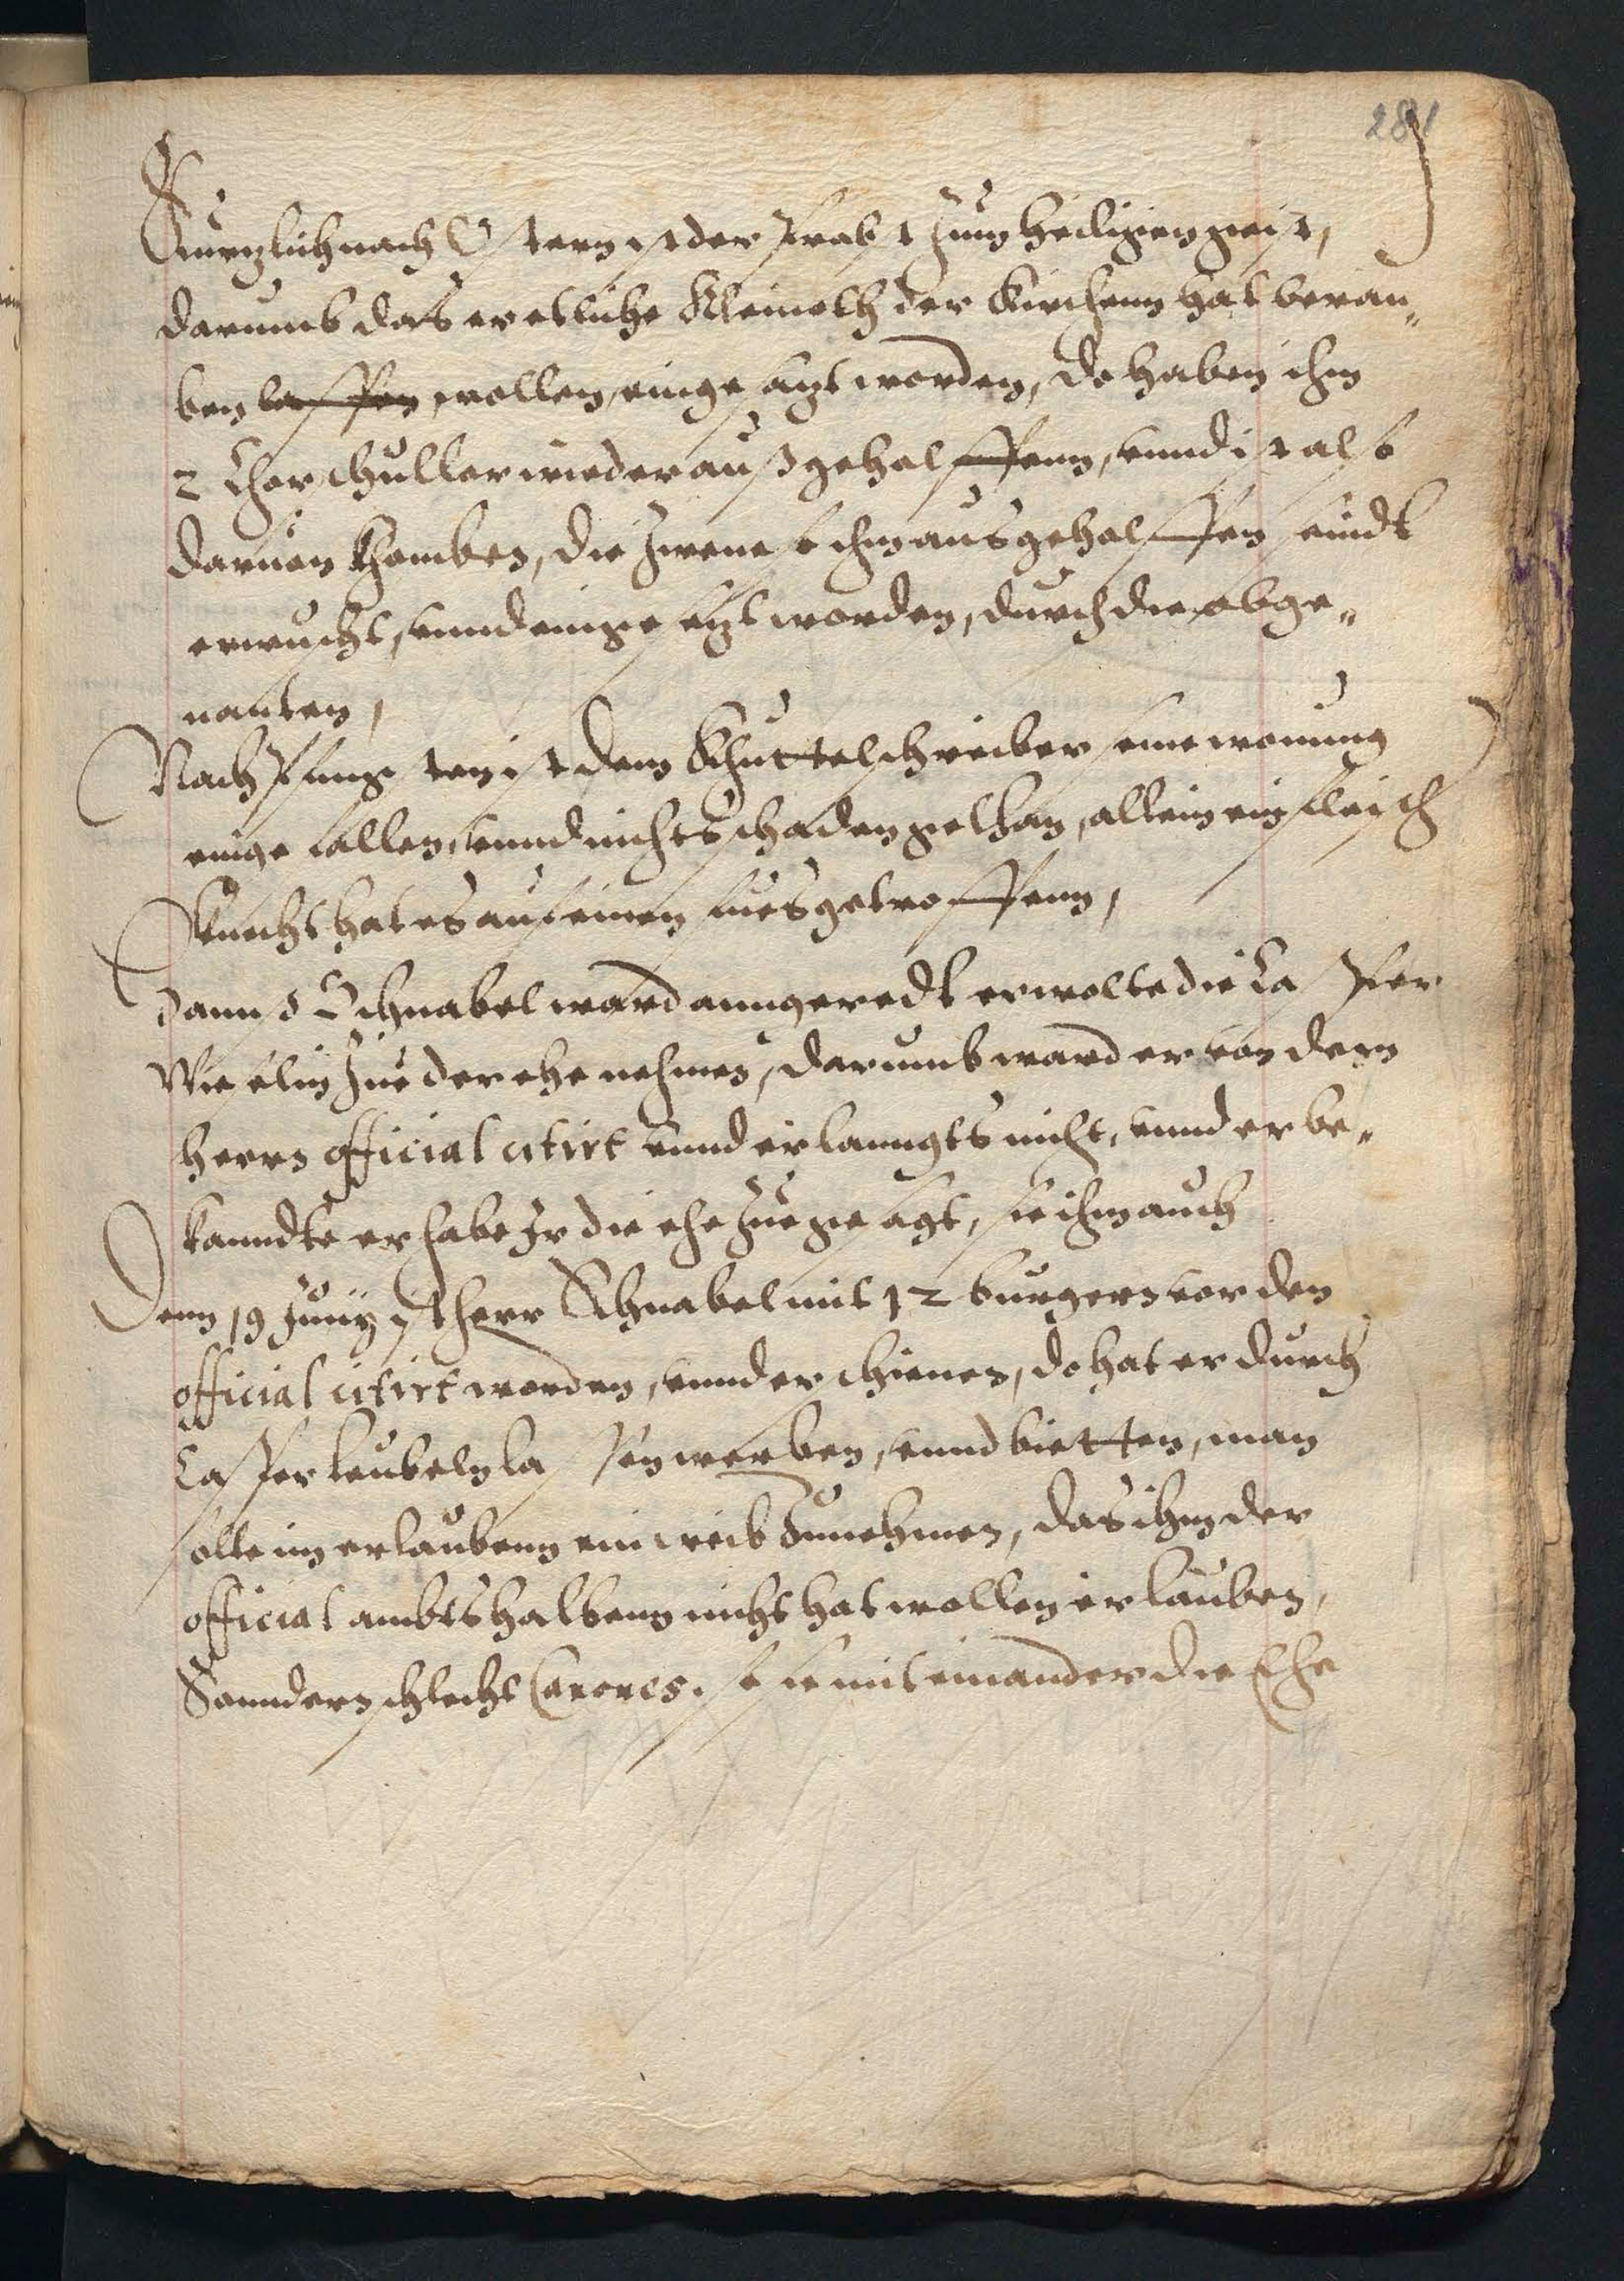 281
Kurzlich nach Ostern ist der Prabst zum Heiligen geist,
darumb das er etliche Kleinoth der Kirchenn hat berau„
ben lassen wollen, eingesatzt worden, do haben ihm
2 Chorschuller wieder außgeholffenn, vnnd ist also
daruon khomben, die zwene so ihm ausgeholffen seindt
erwuscht, vnnd eingesetzt worden, durch die obge„
nanten,
Nach Pfingsten ist dem Khuttelschreiber seine wonung
eingefallen, vnnd nichts schaden gethan, allein ein fleisch
knecht hat es auf einen fues getroffenn,
Dann d Schnabel ward anngeredt er wolte die Casper
Wieselin zue der ehe nehmen, darumb ward er von dem
herrn official citirt vnnd erlanngts nicht, vnnd er be„
kanndte er habe Ir die ehe zuegesagt, sie ihm auch
Denn 19 Junij ist herr Schnabel mit 12 burgern vor den
official citirt worden, vnnd erschienen, do hat er durch
Casper teubeln lassen werben, vnnd bietten, man
solte im erlaubenn ein weib zunehmen, das ihm der
official ambtshalbenn nicht hat wollen erlauben,
Sonndern schlecht Canones. so sie mit einander die Ehe